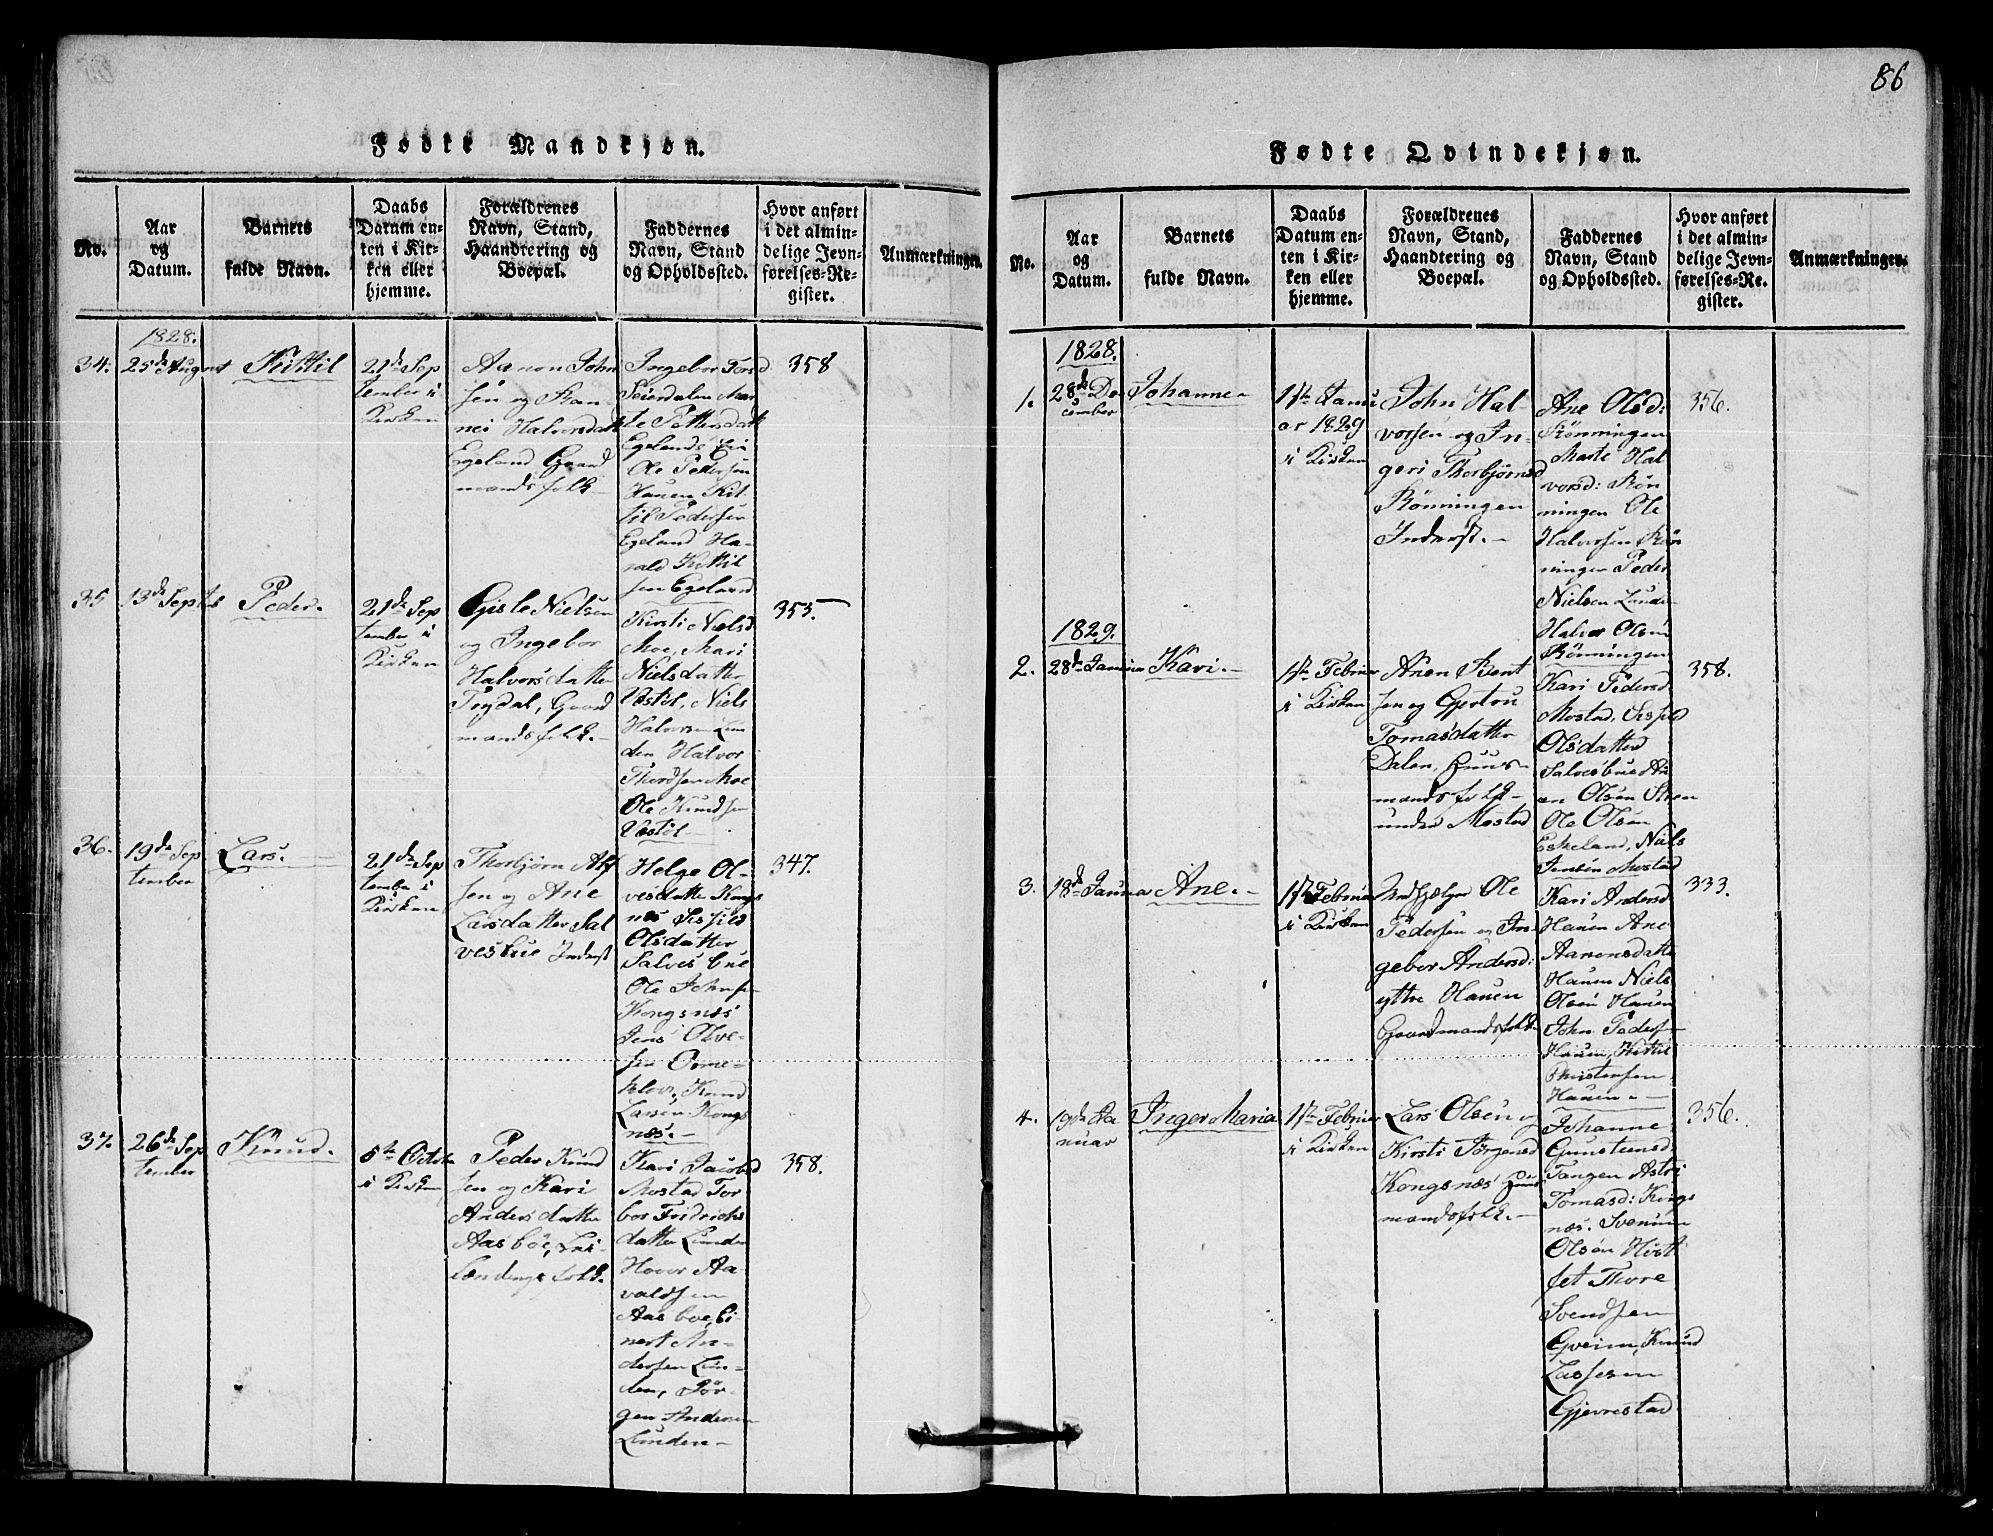 86
Fødte Mandkjøn.
No.
Aar
og
Datum.
Barnets
fulde Navn.
Daabs
Datum en-
ten i Kir-
ken eller
hjemme.
Forældrenes
Navn, Stand,
Haandtering og
Boepæl.
Faddernes
Navn, Stand
og Opholdssted.
Hvor anført
i det almin-
delige Jevn-
førelses-Re-
gister.
Anmærkninger.
1828.
34.
25de August
Kittil
21de Sep
tember i
Kirken
Aanon John
sen og
Halvorsdatt
Egeland Gaard
mandsfolk
Ingebor Tord
Seierdalen Mar
te Pettersdatt
Egeland
Ole Pedersen
Hauen Kit
til Pedersen
Egeland Ha-
rald Kittil
sen Egeland
358
35
13de Septbr
Peder.
21de Sep
tember i
Kirken
Gisle Nielsen
og Ingebor
Halvorsdatter
Gaard
mandsfolk.-
Kirsti Nielsd
Moe, Mari
Nielsdatter
Vestøl, Niels
Halvorsen Lun
den Halvor
Thordsen Moe
Ole Knudsen
Vestøl
353
36.
19de Sep
tember
Lars.
21de Sep
tember i
Kirken
Thorbjørn
sen og Ane
Larsdatter Sal
vesbue Inderst
Helge Ol-
vesdatte Kongs
næs Sissild
Olsdatter
Salvesbue
Ole Johnse
Kongsnæs
Jens Olve-
sen Orme-
klov, Knud
Larsen Kongs
næs.-
347.
37.
26de Sep
tember
Knud.
5te Octob
i Kirken
Peder Knud
sen og Kari
Andersdatte
Aasbøe,
Lændingsfolk.
Kari Jacobsd
Mostad Tor
bor Fridrichs
datter Lunden
Hovor Aa-
valdsen
Aasboe, Ei
nert An-
dersen Lun-
den, Jør-
gen Andersen
Lunden-
358.
Fødte Qvindekjøn.
No.
Aar
og
Datum.
Barnets
fulde Navn.
Daabs
Datum en-
ten i Kir-
ken eller
hjemme.
Forældrenes
Navn, Stand,
Haandtering og
Boepæl.
Faddernes
Navn, Stand
og Opholdssted.
Hvor anført
i det almin-
delige Jevn-
førelses-Re-
gister.
Anmærkninger.
1828.
1.
28de De
cember
Johanne
1ste Janu
ar 1829
i Kirken
John Hal-
vorsen og In-
geri Thorbjørnsd
Rønningen
Inderst.-
Ane Olsd:
Rønningen
Marte Hal
vorsd: Røn
ningen Ole
Halvorsen Røn
ningen Peder
Nielsen Lunde
Halvor Olsen
Rønningen
356.
1829.
2.
28de Januar
Kari.-
1ste Februar
i Kirken
Anen Bent
sen og Gjertru
Tomasdatter
Dalen, Huus-
mandsfolk
under Mostad
Kari Pedersd
Mostad, Sissild
Olsdatter
Salvesbue
Olsen
Ole Olsen
Eskeland, Niels
Jensen Mostad
358.
3.
18de Januar
Ane.-
1ste Februar
i Kirken
Ole
Pedersen og In-
gebor Andersd:
yttre Hauen
Gaardmandsfolk.
Kari Andersd
Hauen Ane
Aanonsdatte
Hauen Niels
Olsen Hauen
John Peders
Hauen, Kittil
Christensen
Hauen.-
333.
4.
19de Ja
nuar
Inger Maria
1ste Februar
i Kirken
Lars Olsen og
Kirsti Jørgensd
Kongsnæs Huus
mandsfolk.-
Johanne
Gunsteensd
Tangen Astri
Tomasd: Kongs
næs. Svenum
Olsen
Thore
Svendsen
Gveim, Knud
Lassesen
Gjevrestad
356.